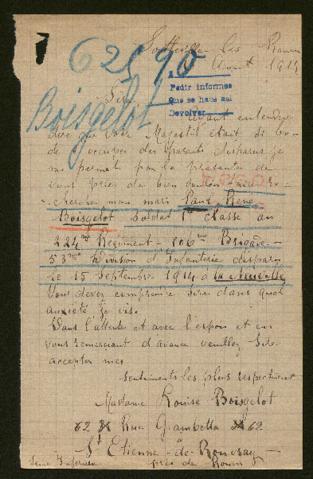 62590
Sotteville les Rouen
Août 1915
A
Pedir informes
Que se haga así
Devolver
Boisgelot
Sire
Ayant entendu
dire que Votre Majesté était si bonne
de s'occuper des disparus je
me permets par la présente de
vous prier de bien vouloir
rechercher mon mari Paul René
Boisgelot Soldat 1ère classe au
224me Régiment - 106me Brigade
53me Division d'Infanterie disparu
le 15 Septembre 1914 à la
Vous devez comprendre Sire dans quel
anxiété je vis.
Dans l'attente et avec l'espoir et en
vous remerciant d'avance veuillez Sire
accepter mes
sentiments les plus respectueux
Madame Louise Boisgelot
62 Rue Gambetta 62
St Etienne-du-Rouvray
Seine Inférieure près de Rouen